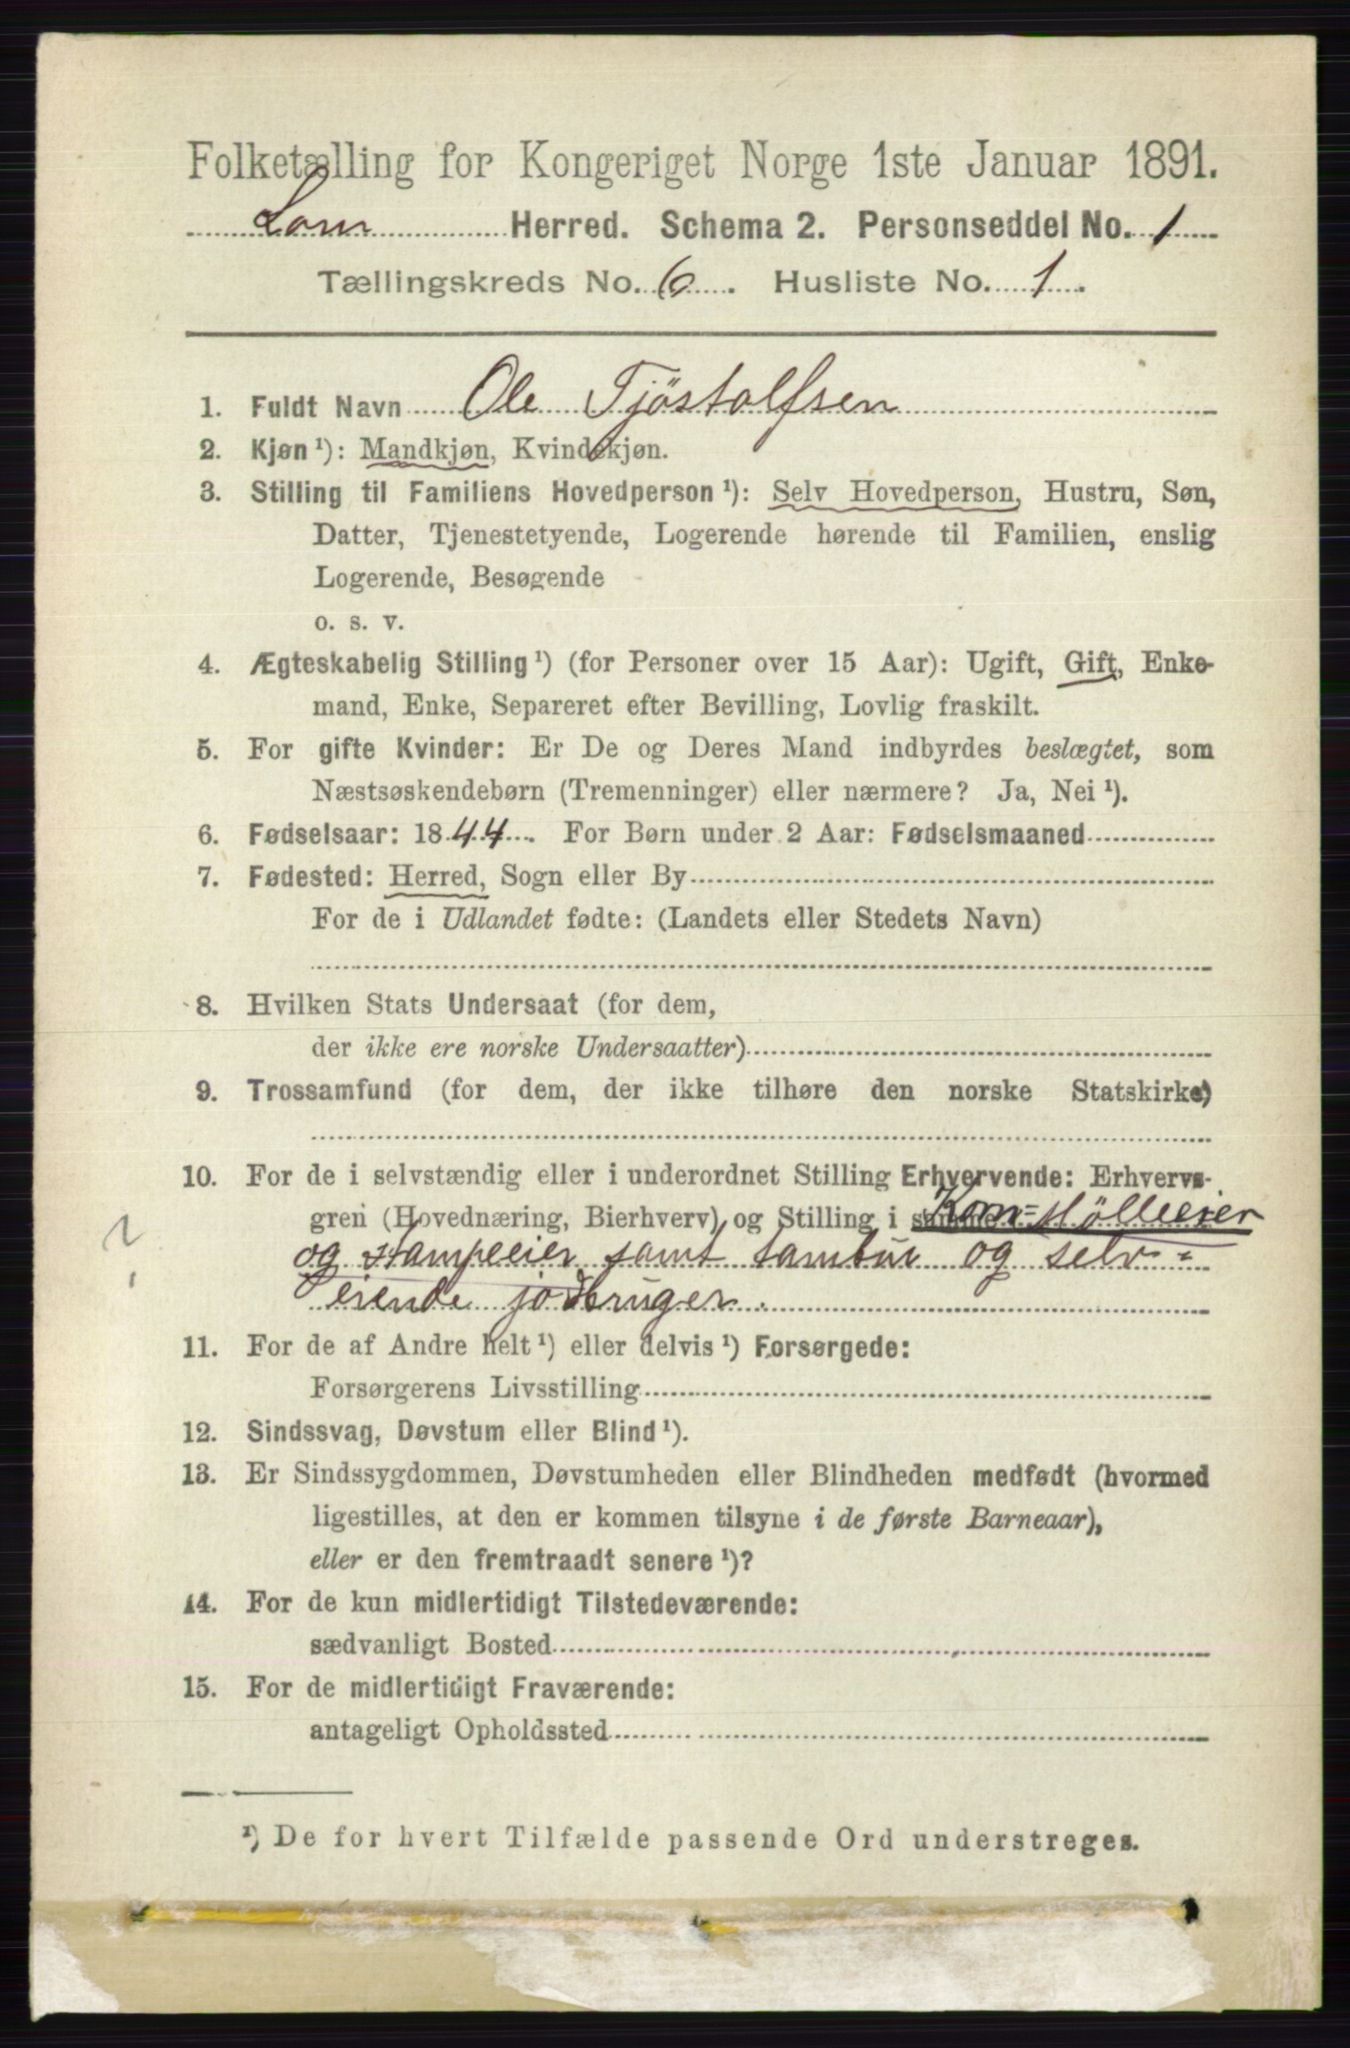 Folketælling for Kongeriget Norge 1ste Januar 1891.
Lom Herred. Schema 2. Personseddel No. 1
Tællingskreds No. 6. Husliste No. 1.
1. Fuldt Navn Ole Tjöstolfsen
2. Kjøn ¹): Mandkjøn, Kvindekjøn.
3. Stilling til Familiens Hovedperson ¹): Selv Hovedperson, Hustru, Søn,
Datter, Tjenestetyende, Logerende hørende til Familien, enslig
Logerende, Besøgende
o. s. v.
4. Ægteskabelig Stilling ¹) (for Personer over 15 Aar): Ugift, Gift, Enke-
mand, Enke, Separeret efter Bevilling, Lovlig fraskilt.
5. For gifte Kvinder: Er De og Deres Mand indbyrdes beslægtet, som
Næstsøskendebørn (Tremenninger) eller nærmere? Ja, Nei ¹).
6. Fødselsaar: 1844. For Børn under 2 Aar: Fødselsmaaned
7. Fødested: Herred, Sogn eller By
For de i Udlandet fødte: (Landets eller Stedets Navn)
8. Hvilken Stats Undersaat (for dem,
der ikke ere norske Undersaatter)
9. Trossamfund (for dem, der ikke tilhøre den norske Statskirke)
10. For de i selvstændig eller i underordnet Stilling Erhvervende: Erhvervs-
gren (Hovednæring, Bierhverv) og Stilling i samme Korn=Mölleeier
?
og Stampeeier samt tambur og selv=
eiende jodbruger.
11. For de af Andre helt ¹) eller delvis ¹) Forsørgede:
Forsørgerens Livsstilling
12. Sindssvag, Døvstum eller Blind ¹).
13. Er Sindssygdommen, Døvstumheden eller Blindheden medfødt (hvormed
ligestilles, at den er kommen tilsyne i de første Barneaar),
eller er den fremtraadt senere ¹)?
14. For de kun midlertidigt Tilstedeværende:
sædvanligt Bosted
15. For de midlertidigt Fraværende:
antageligt Opholdssted
¹) De for hvert Tilfælde passende Ord understreges.